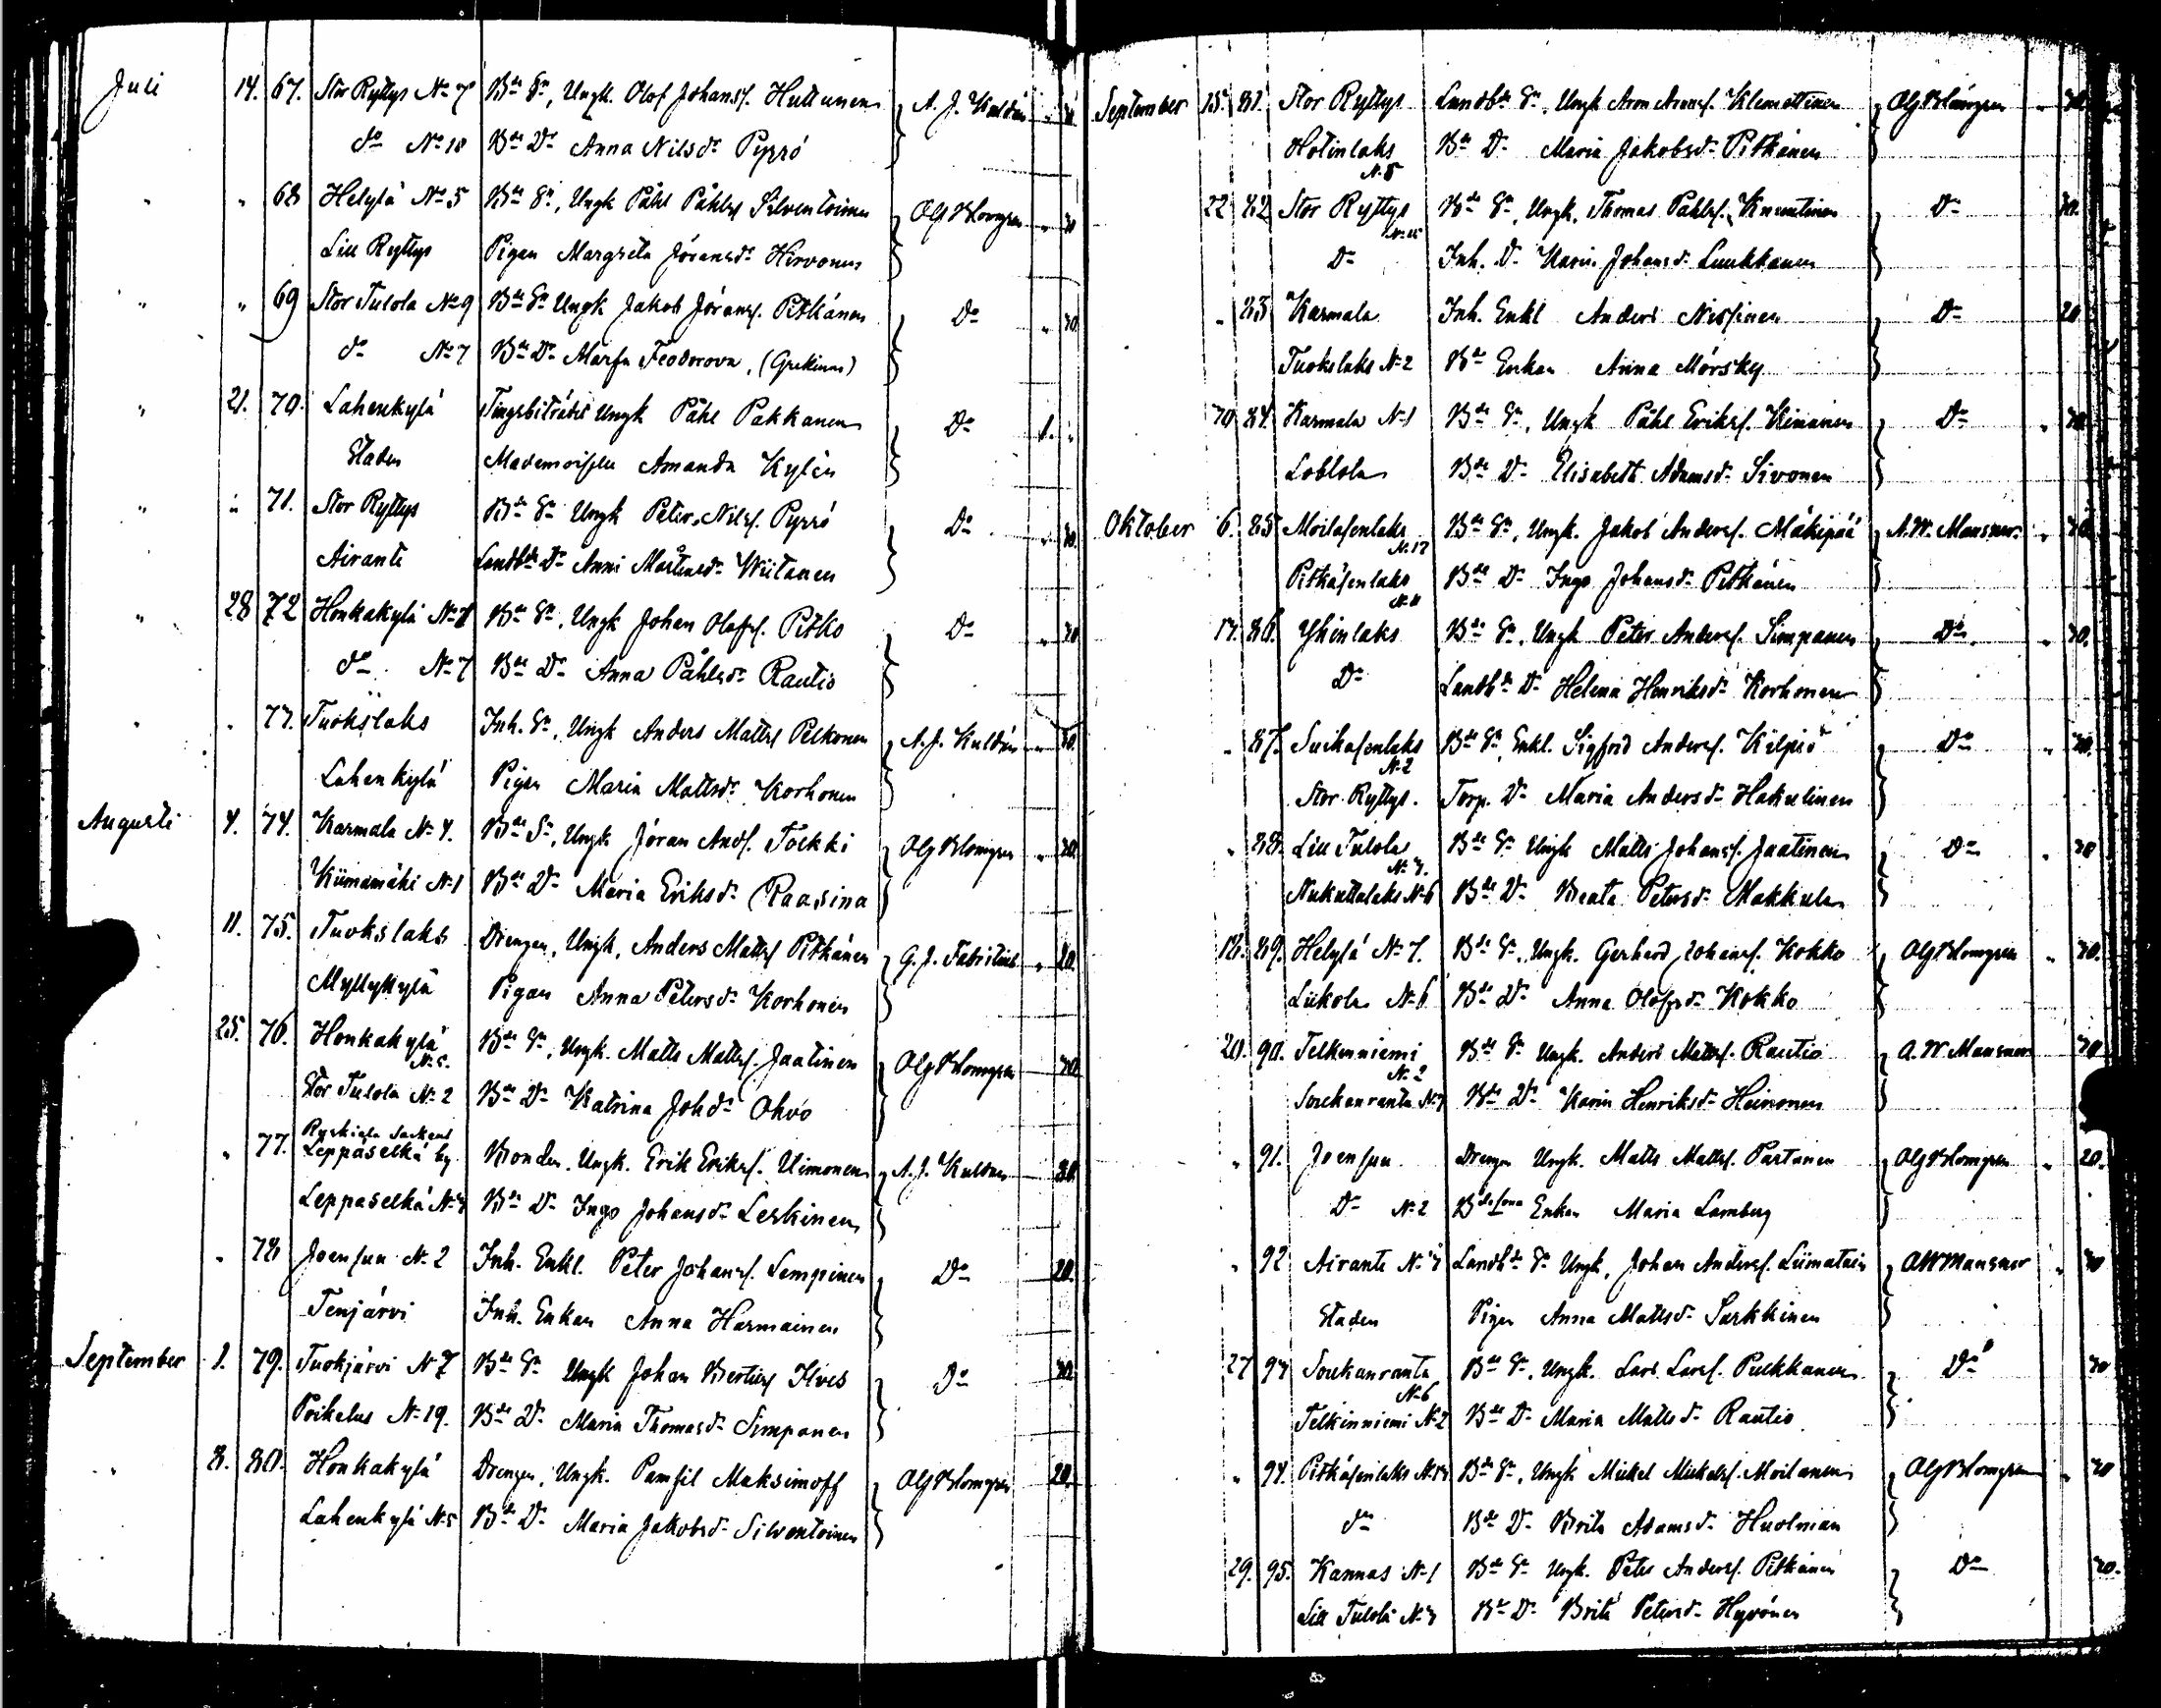 Juli 14. 67. Stor Ryttys No 7 Bde Sn, Ungk. Olof Johansf. Huttunen A. J. Kuldin
do No 18 Bde Dr Anna Nilsdr Pyrrö
" " 68 Helylä No 5 Bde Sn, Ungk Påhl Påhlsf Silventoinen Olf Blomgren " 30
Lill Ryttys Pigan Margreta Jöransdr Hirvonen
" " 69 Stor Tulola No 9 Bde Sn Ungk Jakob Jöransf. Pitkänen Do " 30
do No 7 Bde Dr Marfa Feodorova, (Grekinna)
" 21. 70. Lahenkylä Ungk Påhl Pakkanen Do 1. "
Staden Amanda Kylén
" " 71. Stor Ryttys Bde Sn Ungk Peter Nilsf. Pyrrö Do " 30.
Airante Landbde Dr Anni Mårtensdr Wiitanen
" 28 72 Honkakylä Bde Sn, Ungk Johan Olofsf. Pitko Do " 30
do No 7 Bde Dr Anna Påhlsdr Rautio
" " 73. Tuokslaks Inh. Sn, Ungk Anders Mattsf Pelkonen A. J. Kuldin " 30.
Lahenkylä Pigan Maria Mattsdr Korhonen
Augusti 4. 74. Karmala No 4. Bde Sn, Ungk Jöran Andf. Tolkki Olf Blomgren " 30.
Kiimamäki No 1 Bde Dr Maria Eriksdr Raasina
11. 75. Tuokslaks Drengen, Ungk, Anders Mattsf Pitkänen G. J. Fabritius " 20.
Myllykylä Pigan Anna Petersdr Korhonen
25. 76. Honkakylä No 5. Bde Sn, Ungk. Matts Mattsf. Jaatinen Olf Blomgren 30
Stor Tulola No 2 Bde Dr Katrina Johdr Ohvo
" 77. Ruskiala Sockens Leppäselkä by Bonden, Ungk. Erik Eriksf. Uimonen A. J. Kuldin 30
Leppäselkä No 3 Bde Dr Ingo Johansdr Leskinen
" 78 Joensuu No 2 Inh. Enkl. Peter Johansf. Sempinen Do 20.
Tenjärvi Inh. Enkan Anna Harmainen
September 1. 79. Tuokjärvi N 7 Bde Sn Ungk Johan Bertilsf Ilves Do 30.
Poikelus No 19. Bde Dr Maria Thomasdr Simpanen
" 8. 80. Honkakylä Drengen, Ungk. Pamfil Maksimoff Olf Blomgren 20.
Lahenkylä No 5 Bde Dr Maria Jakobsdr Silventoinen
September 15. 81. Stor Ryttys Landbde Sn, Ungk Aron Aronsf. Klemettinen Olf Blomgren " 30
Hotinlaks No 5 Bde Dr Maria Jakobsdr Pitkänen
22 82 Stor Ryttys Bde Sn, Ungk. Thomas Påhlsf. Knuutinen Do 30.
Do Inh. Dr Karin Johansdr Luukkanen
" 83 Karmala Inh. Enkl Anders Nissinen Do 20
Tuokslaks No 2 Bde Enkan Anna Mörsky
30 84. Karmala No 1 Bde Sn, Ungk Påhl Eriksf. Kinanen Do " 30
Bde Dr Elisabeth Adamsdr Sivonen
Oktober 6. 85 Moilasenlaks No 12 Bde Sn, Ungk. Jakob Andersf. Mäkipää A. W. Mansner " 30.
Pitkäsenlaks Bde Dr Ingo Johansdr Pitkänen
13. 86. Yhinlaks Bde Sn, Ungk Peter Andersf. Simpanen Do " 30.
Do Landbde Dr Helena Henriksdr Korhonen
" 87. Suikasenlaks No 2 Bde Sn, Enkl. Sigfrid Andersf. Kilpiö Do " 30.
Stor Ryttys. Torp. Dr Maria Andersdr Hakulinen
" 88. Lill Tulola Bde Sn Ungk Matts Johansf. Jaatinen Do " 30
Nukuttalaks No 6 Bde Dr Beata Petersdr Makkula
18. 89. Helylä No 7. Bde Sn, Ungk. Gerhard Johansf. Kokko Olf Blomgren " 30.
Liikola No 6 Bde Dr Anna Olofsdr Kokko
20. 90. Telkinniemi No 2 Bde Sn Ungk. Anders Mattsf. Rautio A. W. Mansner 30
Soukanranta Bde Dr Karin Henriksdr Heinonen
" 91. Joensuu Drengen Ungk. Matts Mattsf. Partanen Olf Blomgren " 20.
Do No 2 Enkan Maria Lamberg
" 92 Airante No 3 Landbde Sn Ungk, Johan Andersf. Liimatain A W Mansner " 30
Staden Pigan Anna Mattsdr Sarkkinen
27 93 Soukanranta No 6 Bde Sn, Ungk. Lars Larsf. Pulkkanen Do 30
Telkinniemi No 2 Bde Dr Maria Mattsdr Rautio
" 94. Pitkäsenlaks Bde Sn, Ungk Mickel Mickelsf. Moilanen Olf Blomgren " 30
do Bde Dr Brita Adamsdr Huolman
29. 95. Kannas No 1 Bde Sn Ungk. Peter Andersf. Pitkänen Do 30.
Lill Tulola No 3 Bde Dr Brita Petersdr Hyvönen